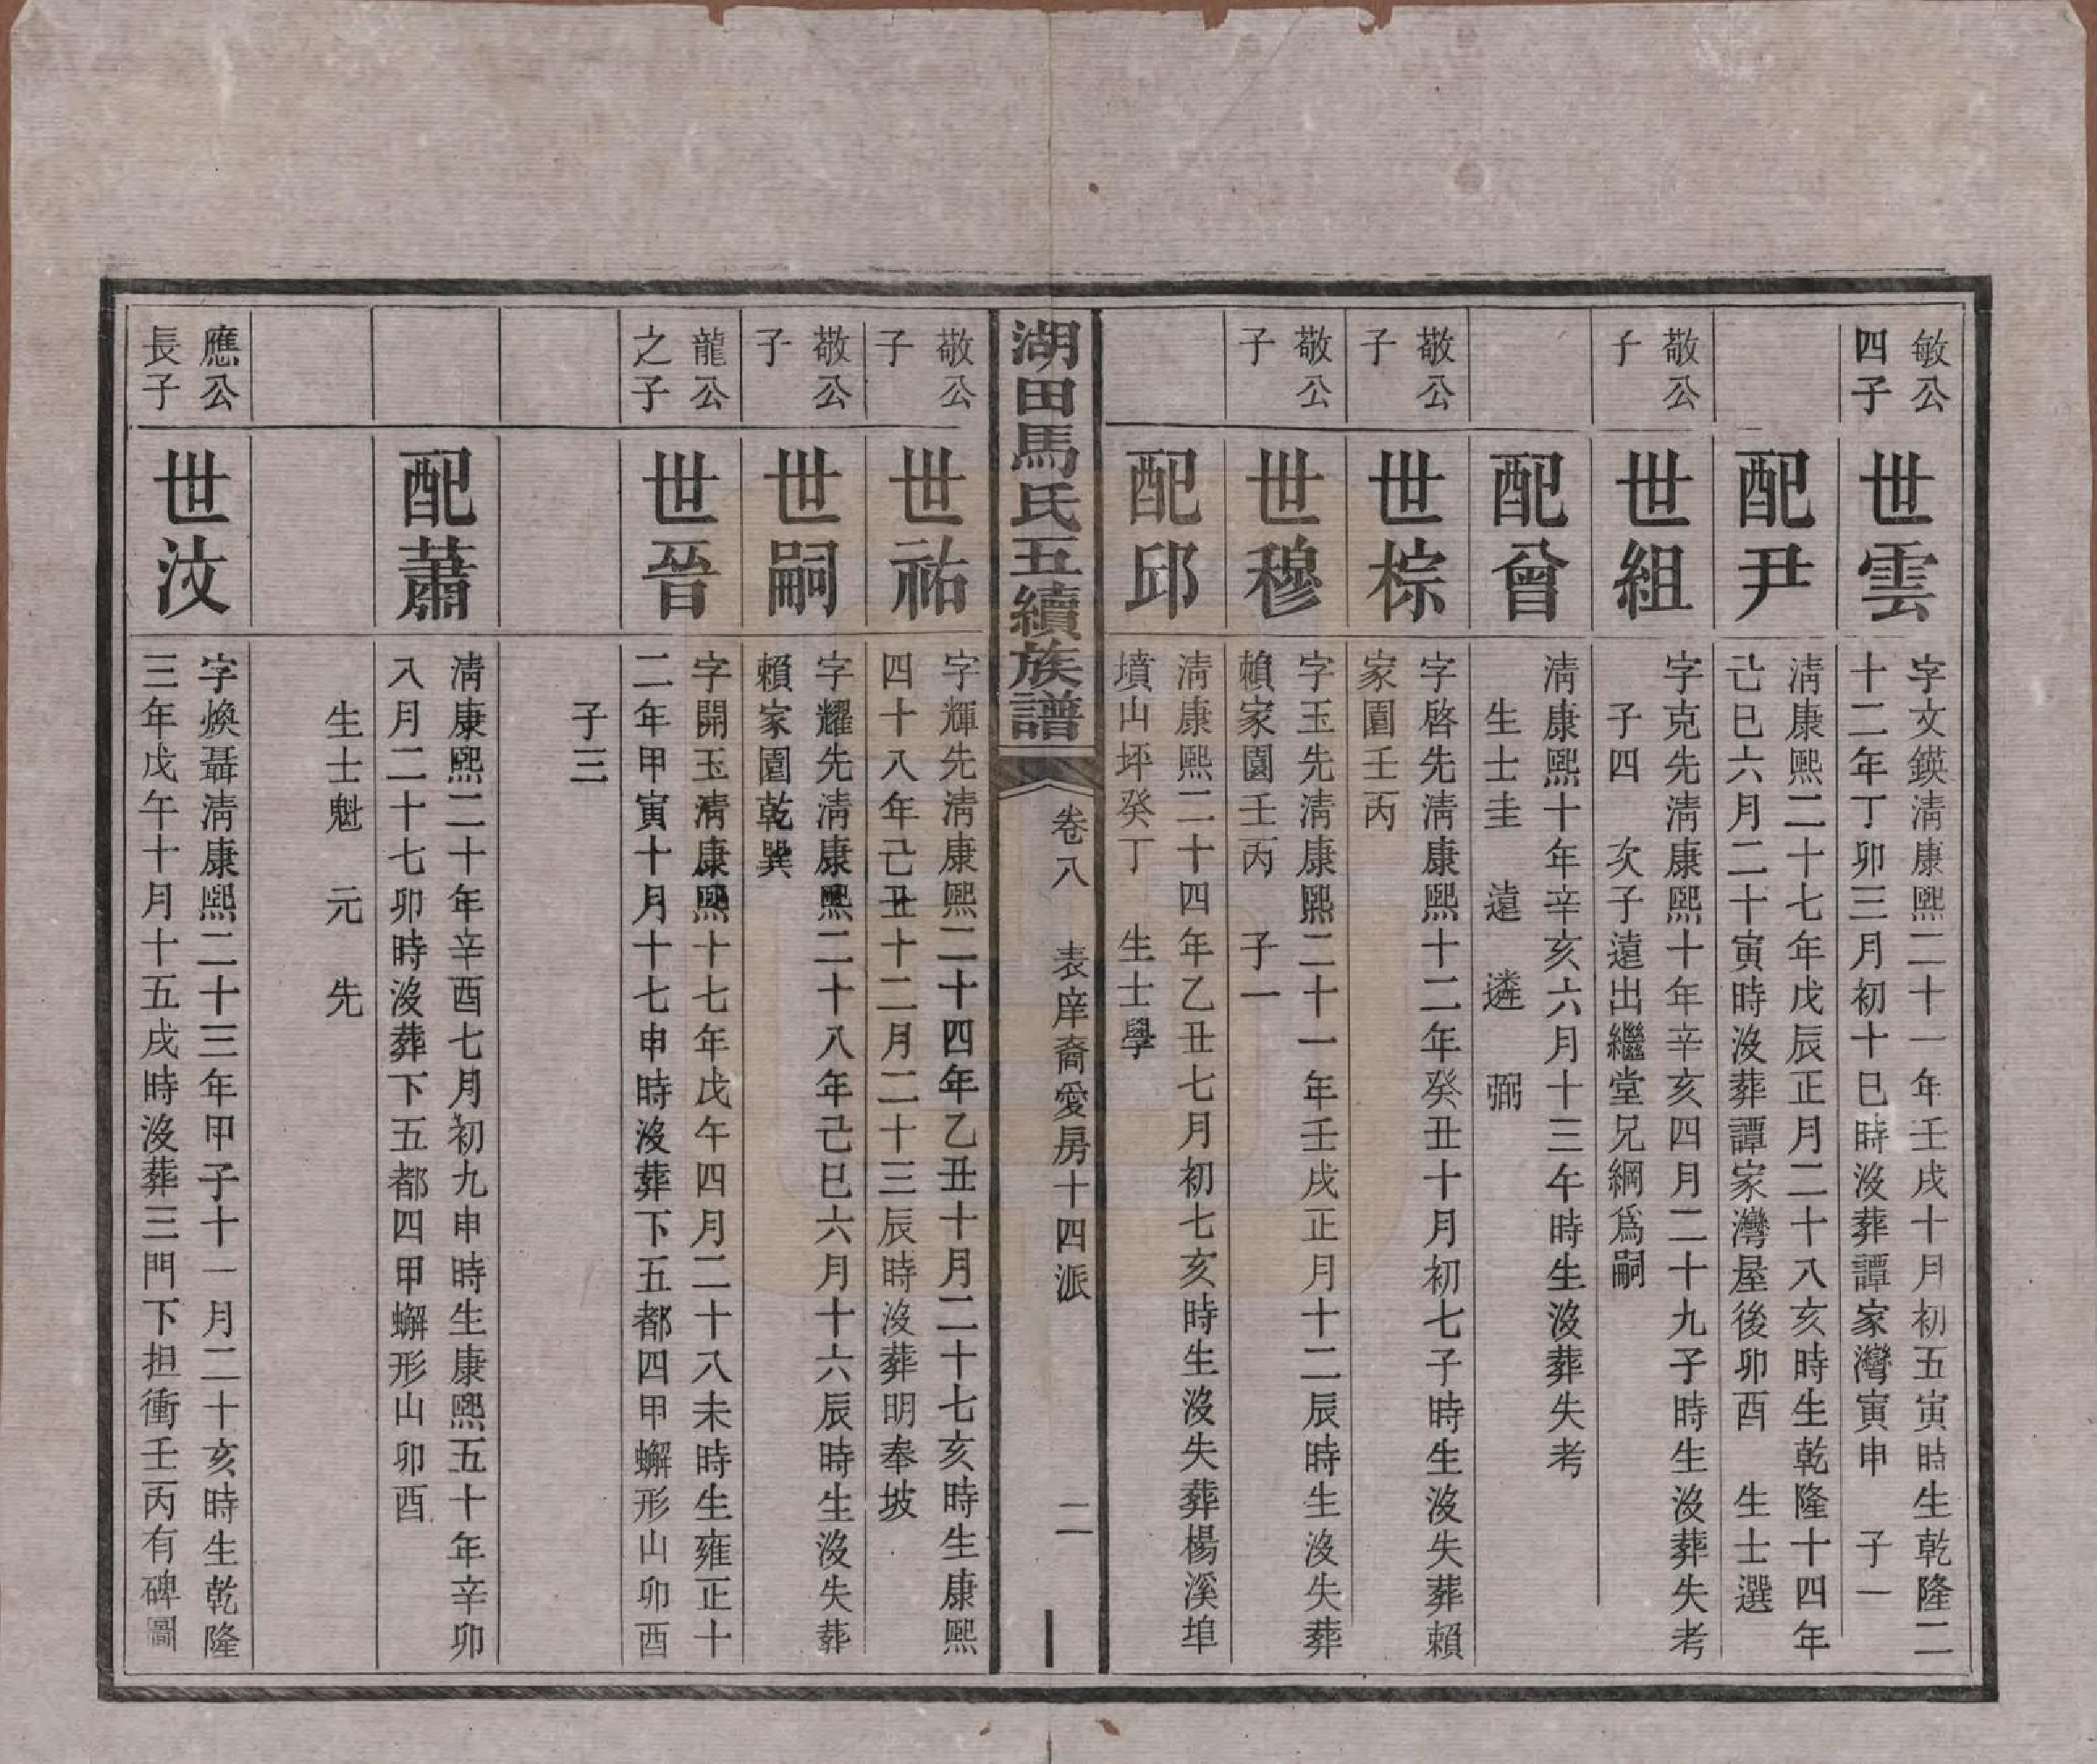 敏公
四子
世雲
字文鍈淸康熙二十一年壬戌十月初五寅時生乾隆二
十二年丁卯三月初十巳時沒葬譚家灣寅申　子一
配尹
淸康熙二十七年戊辰正月二十八亥時生乾隆十四年
己巳六月二十寅時沒葬譚家灣屋後卯酉　生士選
敬公
子
世組
字克先淸康熙十年辛亥四月二十九子時生沒葬失考
子四　次子遠出繼堂兄綱爲嗣
配曾
淸康熙十年辛亥六月十三午時生沒葬失考
生士圭　遠　遴　弼
敬公
子
世棕
字啓先淸康熙十二年癸丑十月初七子時生沒失葬賴
家園壬丙
敬公
子
世穆
字玉先淸康熙二十一年壬戌正月十二辰時生沒失葬
賴家園壬丙　子一
配邱
淸康熙二十四年乙丑七月初七亥時生沒失葬楊溪埠
墳山坪癸丁　生士學
湖田馬氏五續族譜
卷八　表庠裔愛房十四派
二
敬公
子
世祐
字輝先淸康熙二十四年乙丑十月二十七亥時生康熙
四十八年己丑十二月二十三辰時沒葬明奉坡
敬公
子
世嗣
字耀先淸康熙二十八年己巳六月十六辰時生沒失葬
賴家園乾巽
龍公
之子
世晉
字開玉淸康熙十七年戊午四月二十八未時生雍正十
二年甲寅十月十七申時沒葬下五都四甲蠏形山卯酉
子三
配蕭
淸康熙二十年辛酉七月初九申時生康熙五十年辛卯
八月二十七卯時沒葬下五都四甲蠏形山卯酉
生士魁　元　先
應公
長子
世汶
字煥聶淸康熙二十三年甲子十一月二十亥時生乾隆
三年戊午十月十五戌時沒葬三門下担衝壬丙有碑圖